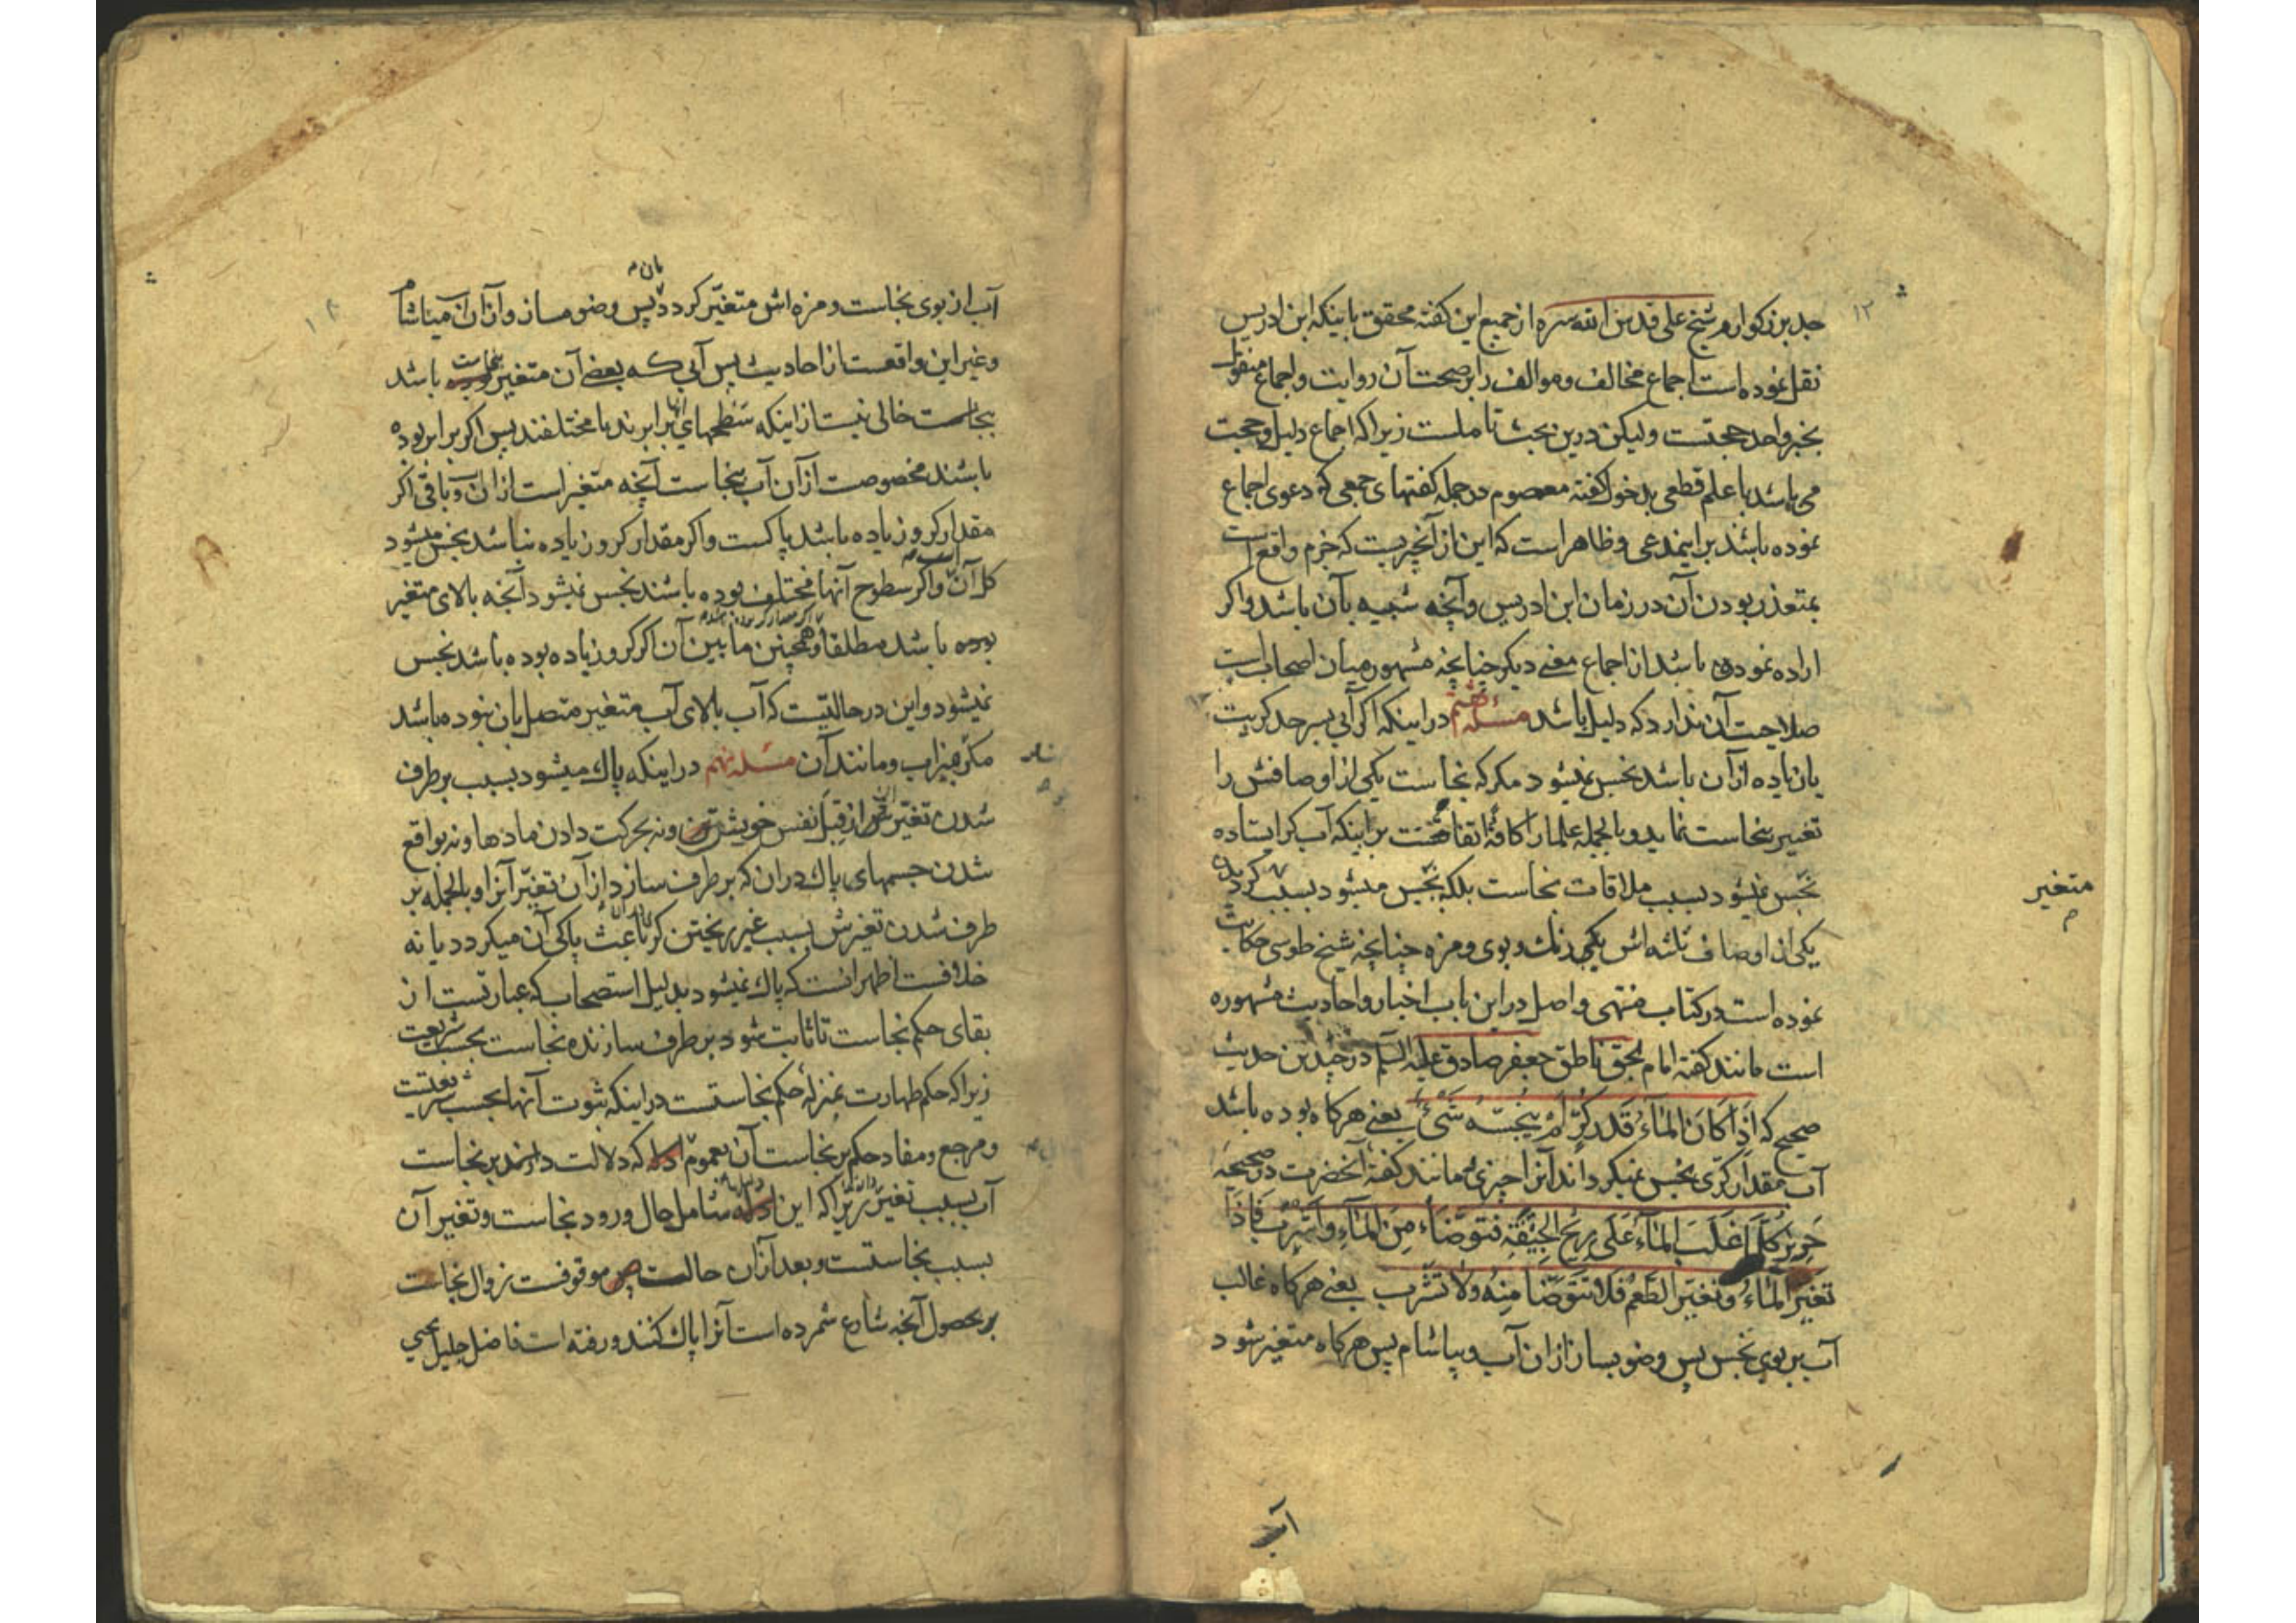 ١٢
جد بزرکوارم شیخ علی قدس الله سره از جمیع این کفته محقق باینکه ابن ادریس
نقل نموده است اجماع مخالف و موالف را بر صحت آن روایت و اجماع منقول
بخبر واحد حجتست ولیکن درین بحث تاملست زیرا که اجماع دلیل و حجت
می باشد با علم قطعی بدخول کفته معصوم در جمله کفتهای جمعی که دعوی اجماع
نموده باشند بر اینمدعی و ظاهر است که این از آنچیزیست که جزم واقع است
بمتعذر بودن آن در زمان ابن ادریس و آنچه شبیه بآن باشد و اکر
اراده نموده باشد از اجماع معنی دیکر چنانچه مشهور میان اصحاب است
صلاحیت آن ندارد که دلیل باشد مسئله هشتم در اینکه اکر آبی بسر حد کریت
یا زیاده از آن باشد نجس نمیشود مکر که نجاست یکی از اوصافش را
تغییر نجاست نماید و بالجمله علما را کافة اتفاقست بر اینکه آب کر ایستاده
نجس نمیشود بسبب ملاقات نجاست بلکه نجس میشود بسبب کردیدن
متغیر
یکی از اوصاف ثلثه اش یکی رنك و بوی و مزه چنانچه شیخ طوسی حکایت
نموده است در کتاب منتهی و اصل در این باب اخبار و احادیث مشهوره
است مانند کفته امام بحق ناطق جعفر صادق علیه السلم در چندین حدیث
صحیح که اِذَا کَانَ المَاءُ قَدرَ کُرٍّ لَمْ یُنَجِّسْهُ شَیْءٌ یعنی هرکاه بوده باشد
آب مقدار کری نجس نمیکرداند آنرا چیزی و مانند کفته آنحضرت در صحیحه
حَرِیز کُلَّمَا غَلَبَ المَآءُ عَلَی رِیحِ الجِیفَةِ فَتَوَضَّاء مِنَ المَآءِ وَاشْرَب فَاذَا
تَغَیَّرَ المَاءُ وَتَغَیَّرَ الطَّعْمُ فَلا تَتَوَضَّا مِنهُ وَلا تَشْرَب یعنی هرکاه غالب
آب بر بوی نجس پس وضو بساز از ان آب و بیاشام پس هرکاه متغیر شود
آب
آب از بوی نجاست و مزه اش متغیر کردد بان پس وضو مساز و از ان میاشام
و غیر این واقعست از احادیث پس آبی که بعضی آن متغیر باشد
بنجاست خالی نیست از اینکه سطحهای آنها برابرند یا مختلفند پس اکر برابر بوده
باشند مخصوصست از آن آب بنجاست آنچه متغیر است از ان و باقی اکر
مقدار کر و زیاده باشد پاکست و اکر مقدار کر و زیاده نباشد نجس میشود
کل آن آب و اکر سطوح آنها مختلف بوده باشند نجس نمیشود آنچه بالای متغیر
بوده باشد مطلقا و همچنین ما بین آن اکر کر و زیاده بوده باشد نجس
نمیشود و این در حالتیست که آب بالای آب متغیر متصل بان نبوده باشد
مکر بمیزاب و مانند آن مسئله نهم در اینکه پاك میشود بسبب برطرف
شدن تغیرش از قبل نفس خویشتن و نه بحرکت دادن بادها و نه بواقع
شدن جسمهای پاك در ان که برطرف سازد از آن تغیر آنرا و بالجمله بر
طرف شدن تغیرش بسبب غیر ریختن کر باعث پاکی آن میکردد یا نه
خلافست اظهر انست که پاك نمیشود بدلیل استصحاب که عبارتست از
بقای حکم نجاست تا ثابت شود برطرف سازنده نجاست بحسب شریعت
زیرا که حکم طهارت بمنزله حکم نجاستست در اینکه ثبوت آنها بحسب شریعتست
و مرجع و مفاد حکم بر نجاست آن بعموم ادله که دلالت دارند بر نجاست
آب بسبب تغیر زیرا که این ادله شامل حال ورود نجاست و تغیر آن
بسبب نجاستست و بعد از ان حالت موقوفست زوال نجاست
بر حصول آنچه شارع شمرده است آنرا پاك کننده و رفته است فاضل جلیل یحیی